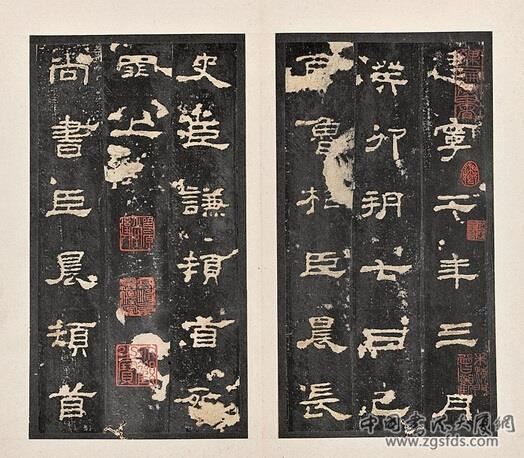 建寧二年三月
癸卯朔七日己
酉魯相臣晨長
史臣謙頓首死
罪上
尚書臣晨頓首
中国书法大展网
www.zgsfds.com